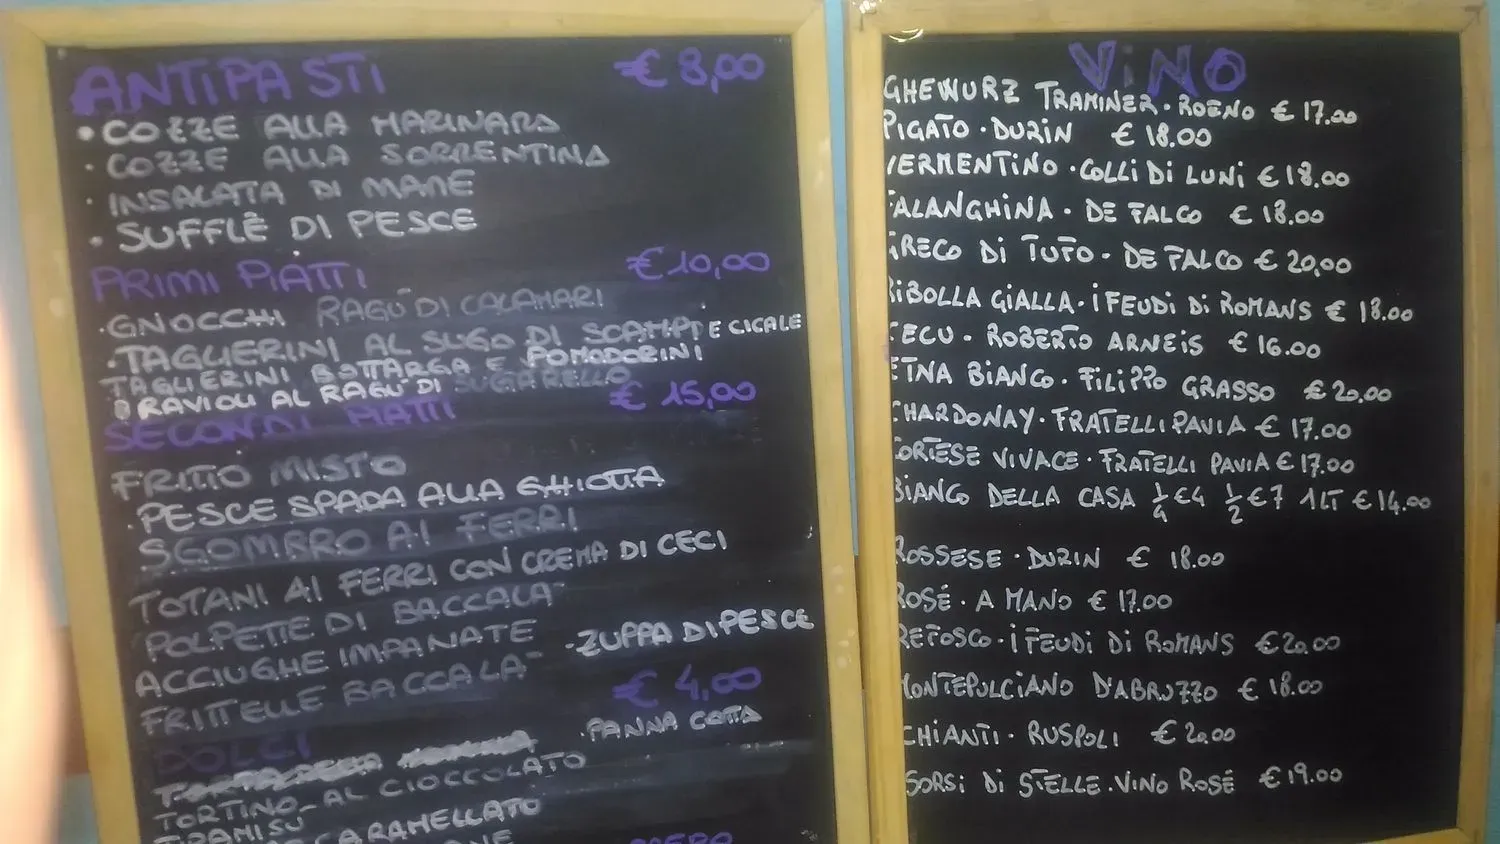 ANTIPASTI € 8,00
• COZZE ALLA MARINARA
• COZZE ALLA SORRENTINA
• INSALATA DI MARE
• SUFFLÈ DI PESCE
PRIMI PIATTI € 10,00
• GNOCCHI RAGÙ DI CALAMARI
• TAGLIERINI AL SUGO DI SCAMPI E CICALE
TAGLIERINI BOTTARGA E POMODORINI
RAVIOLI AL RAGÙ DI SUGARELLO
SECONDI PIATTI € 15,00
FRITTO MISTO
• PESCE SPADA ALLA GHIOTTA
SGOMBRO AI FERRI
TOTANI AI FERRI CON CREMA DI CECI
"POLPETTE DI BACCALA"
ACCIUGHE IMPANATE • ZUPPA DI PESCE
FRITTELLE BACCALA"
DOLCI € 4,00
• PANNA COTTA
TORTINO AL CIOCCOLATO
TIRAMISU
CARAMELLATO
VINO
GHEWURZ TRAMINER • ROENO € 17.00
PIGATO • DURIN € 18.00
VERMENTINO • COLLI DI LUNI € 18.00
FALANGHINA • DE FALCO € 18.00
GRECO DI TUFO • DE FALCO € 20,00
RIBOLLA GIALLA • I FEUDI DI ROMANS € 18.00
ECU • ROBERTO ARNEIS € 16.00
ETNA BIANCO • FILIPPO GRASSO € 20,00
CHARDONAY • FRATELLI PAVIA € 17.00
CORTESE VIVACE • FRATELLI PAVIA € 17.00
BIANCO DELLA CASA 1/4 €4 1/2 €7 1LT € 14.00
ROSSESE • DURIN € 18.00
ROSÉ • A MANO € 17.00
REFOSCO • I FEUDI DI ROMANS € 20.00
MONTEPULCIANO D'ABRUZZO € 18.00
CHIANTI • RUSPOLI € 20.00
SORSI DI STELLE • VINO ROSÉ € 19.00